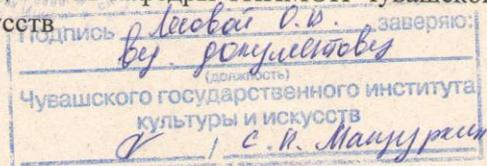 усств
Подпись Лосовой О.В. заверяю:
вед. документовед
(должность)
Чувашского государственного института
культуры и искусств
/ С. П.